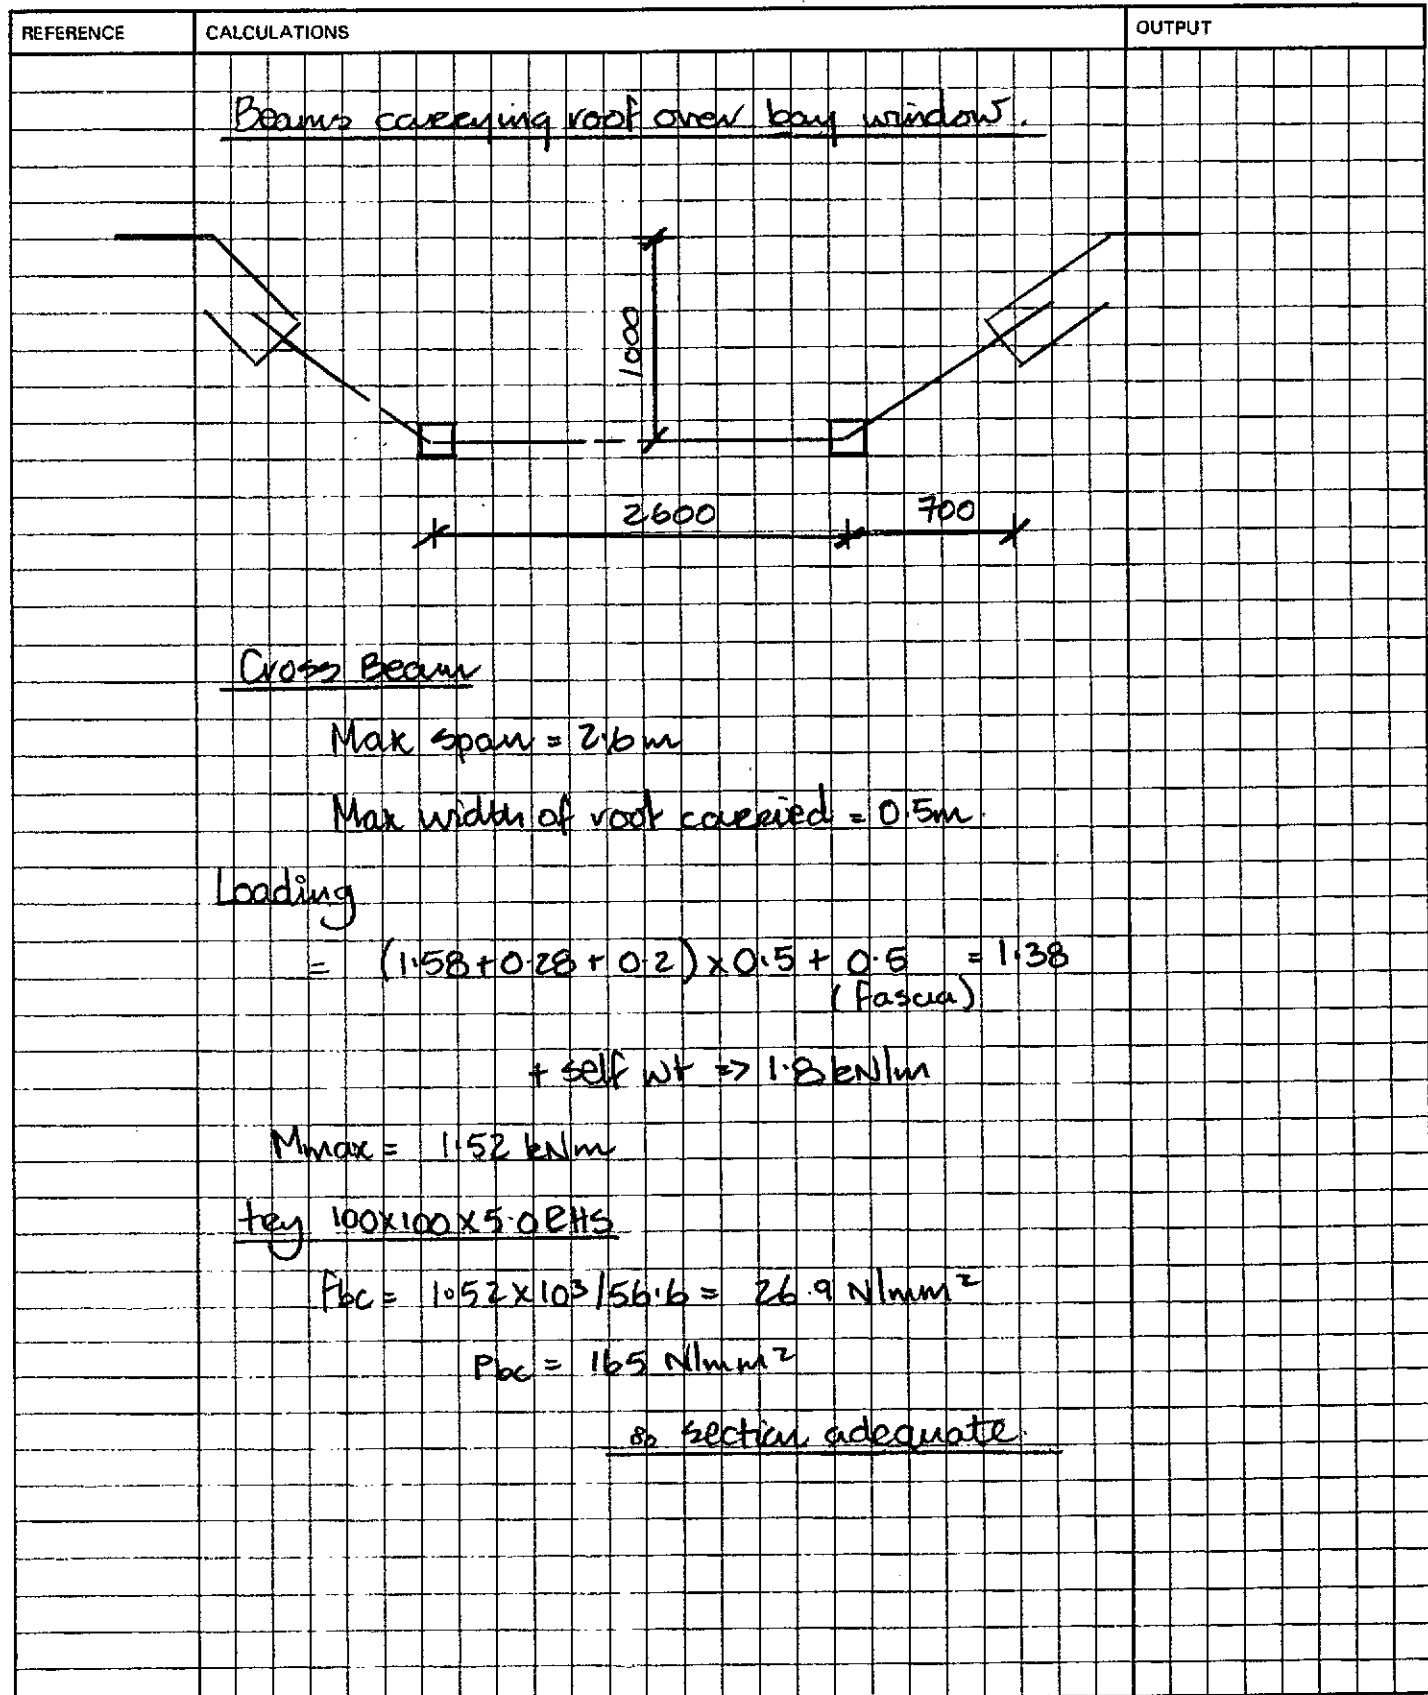 REFERENCE
CALCULATIONS
OUTPUT
Beams carrying roof over bay window.
1000
2600
700
Cross Beam
Max span = 2.6m
Max width of roof carried = 0.5m.
Loading
= (1.58+0.28+0.2)×0.5+ 0.5 = 1.38
(fascia)
+ self wt => 1.8 kN/m
Mmax = 1.52 kNm
try 100x100x5.0 RHS
fbc = 1.52×10³/56.6 = 26.9 N/mm²
Pbc = 165 N/mm²
so section adequate.